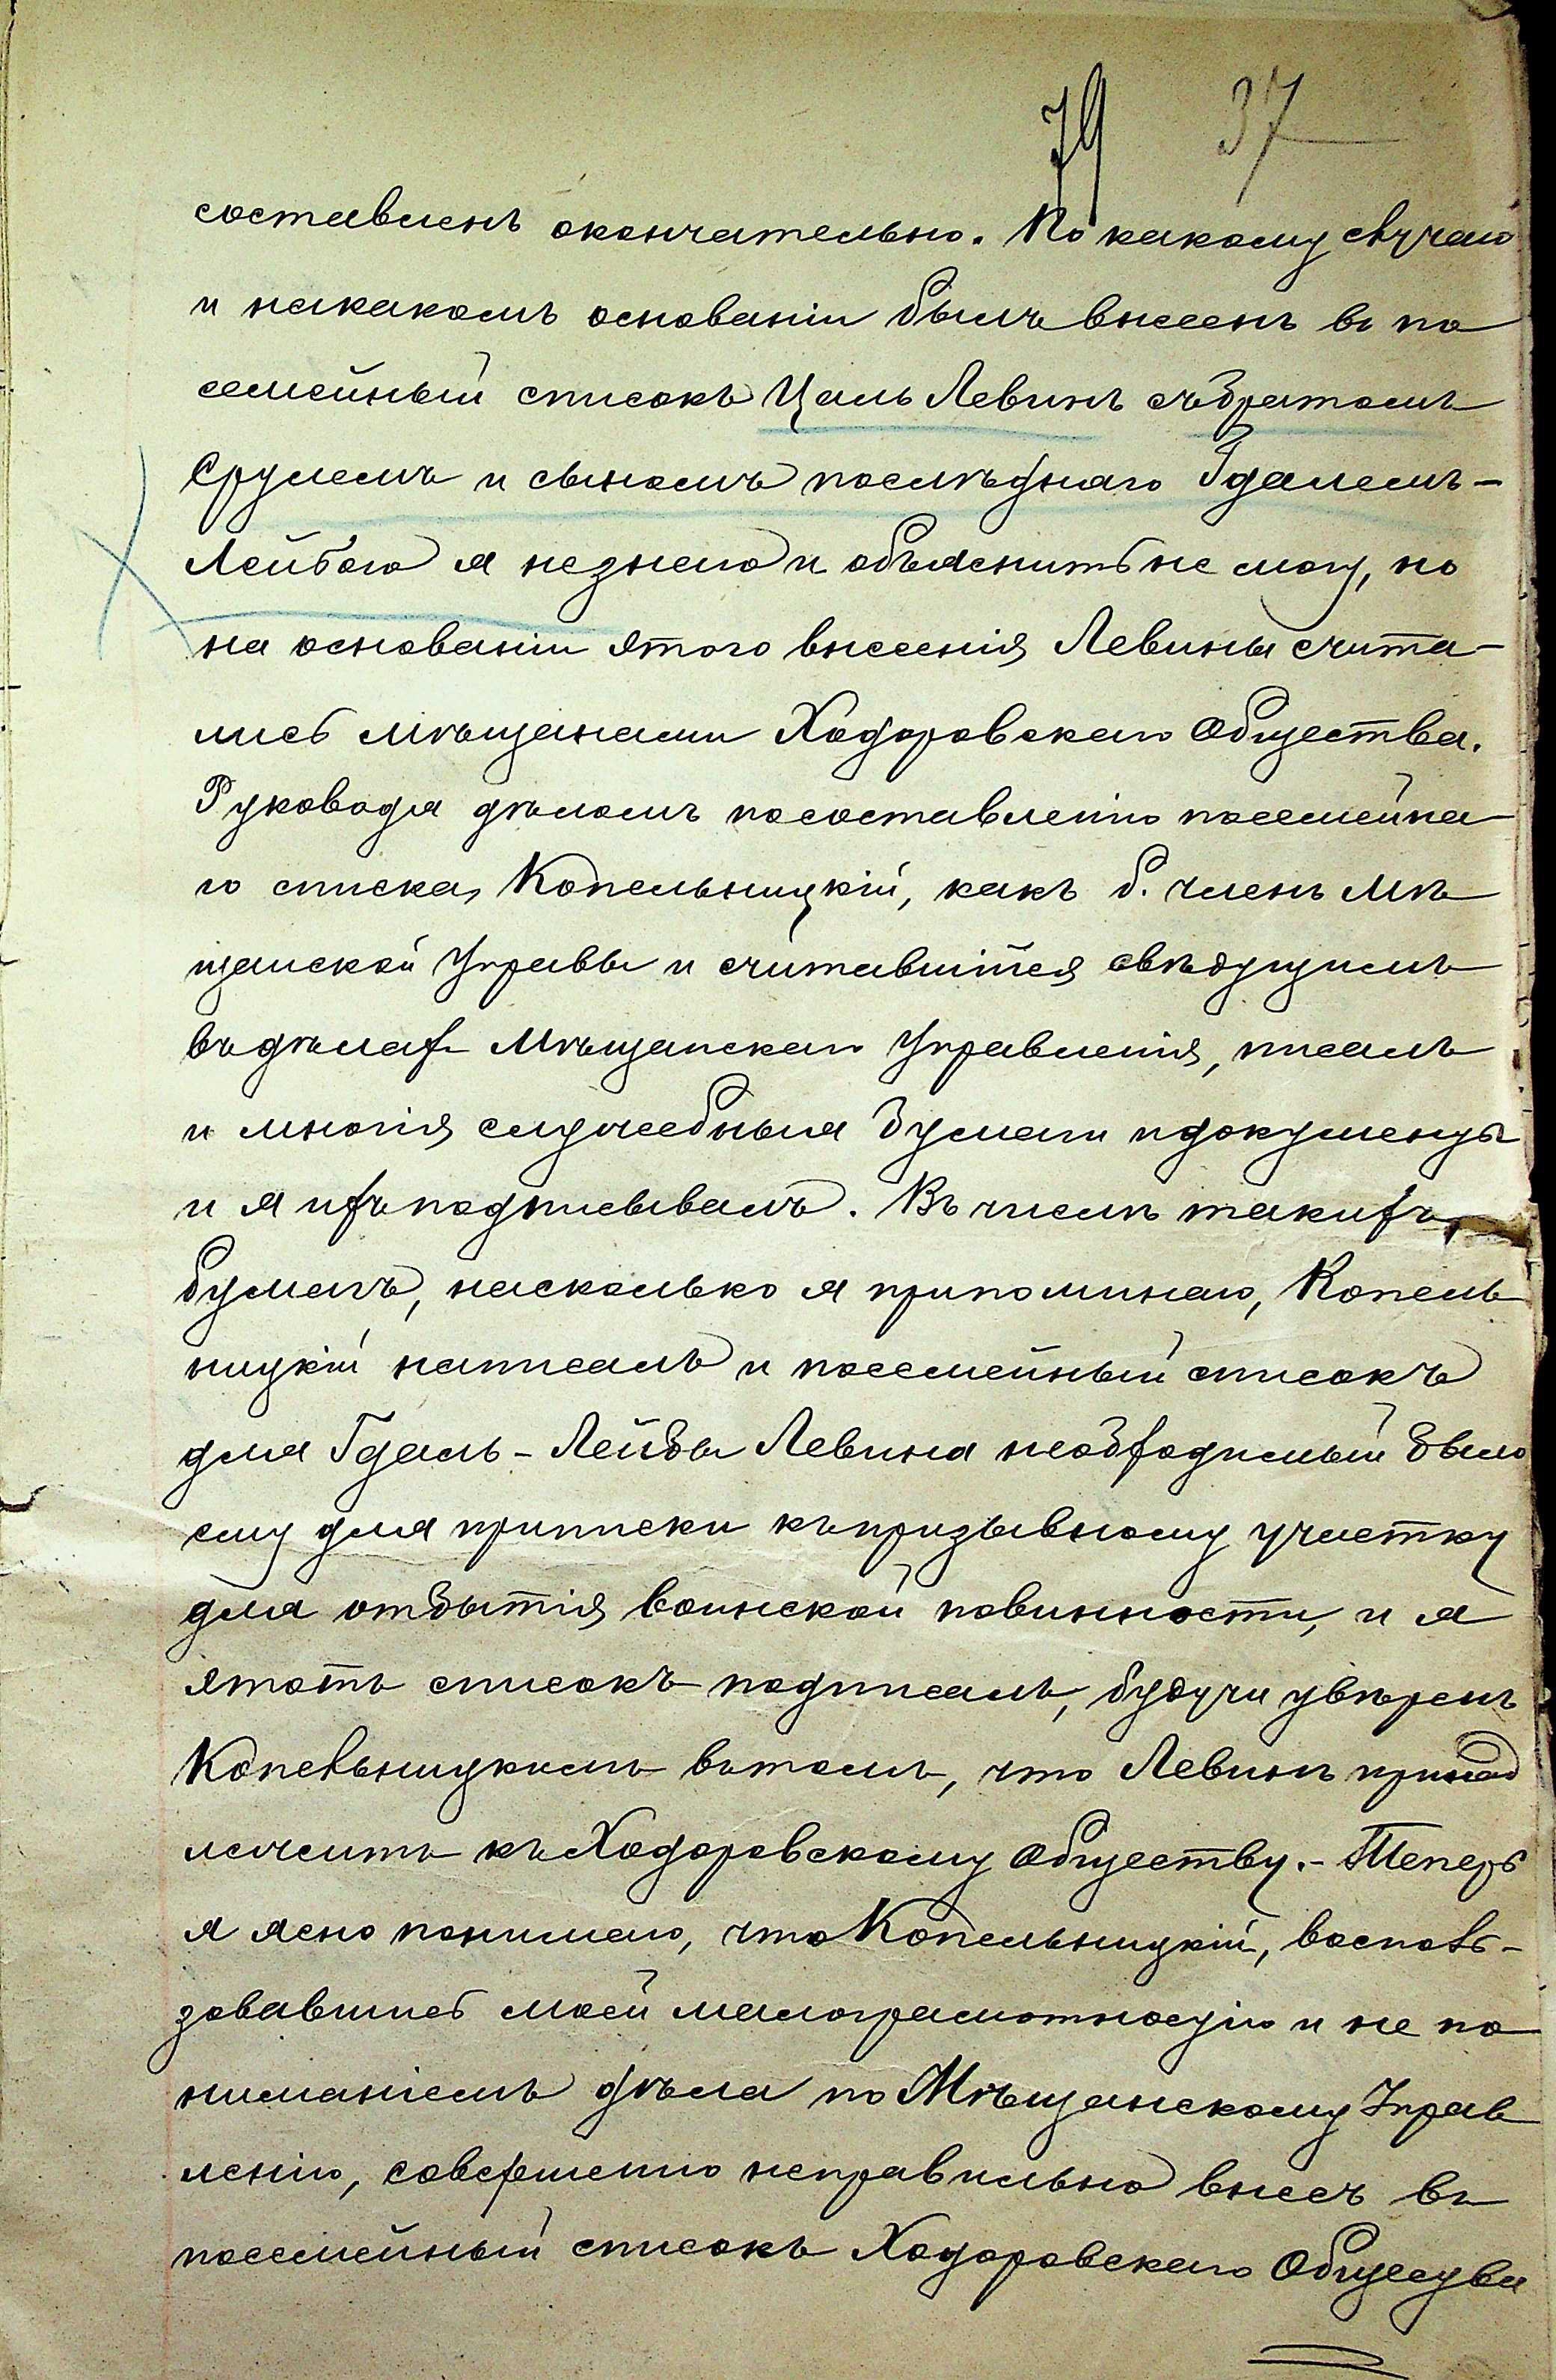 79 37
составленъ окончательно. По какому случаю
и накакомъ основаніи былъ внесенъ въ по
семейный списокъ Цаль Левинъ съ братомъ
Срулемъ и сыномъ послѣдняго Гдалемъ-
Лейбою я незнаю и объяснить не могу, но
на основаніи этого внесенія Левины счита-
лись мѣщанами Ходоровскаго Общества.
Руководя дѣломъ по составленію посемейна-
го списка, Копельницкій, какъ б. членъ Мѣ
щанской Управы и считавшійся свѣдущимъ
въ дѣлахъ Мѣщанскаго Управленія, писалъ
и многія служебныя бумаги и документы
и я ихъ подписывалъ. Въ числѣ такихъ
бумагъ, насколько я припоминаю, Копель
ницкій написалъ и посемейный списокъ
для Гдаль-Лейбы Левина необходимый было
ему для приписки къ призывному участку
для отбытія воинской повинности, и я
этотъ списокъ подписалъ, будучи увѣренъ
Копельницкимъ въ томъ, что Левинъ принад
лежитъ къ Ходоровскому Обществу.- Теперь
я ясно понимаю, что Копельницкій, восполь-
зовавшись моей малограмотностію и не по
ниманіемъ дѣла по Мѣщанскому Управ
ленію, совершенно неправильно внесъ въ
посемейный списокъ Ходоровскаго Общества